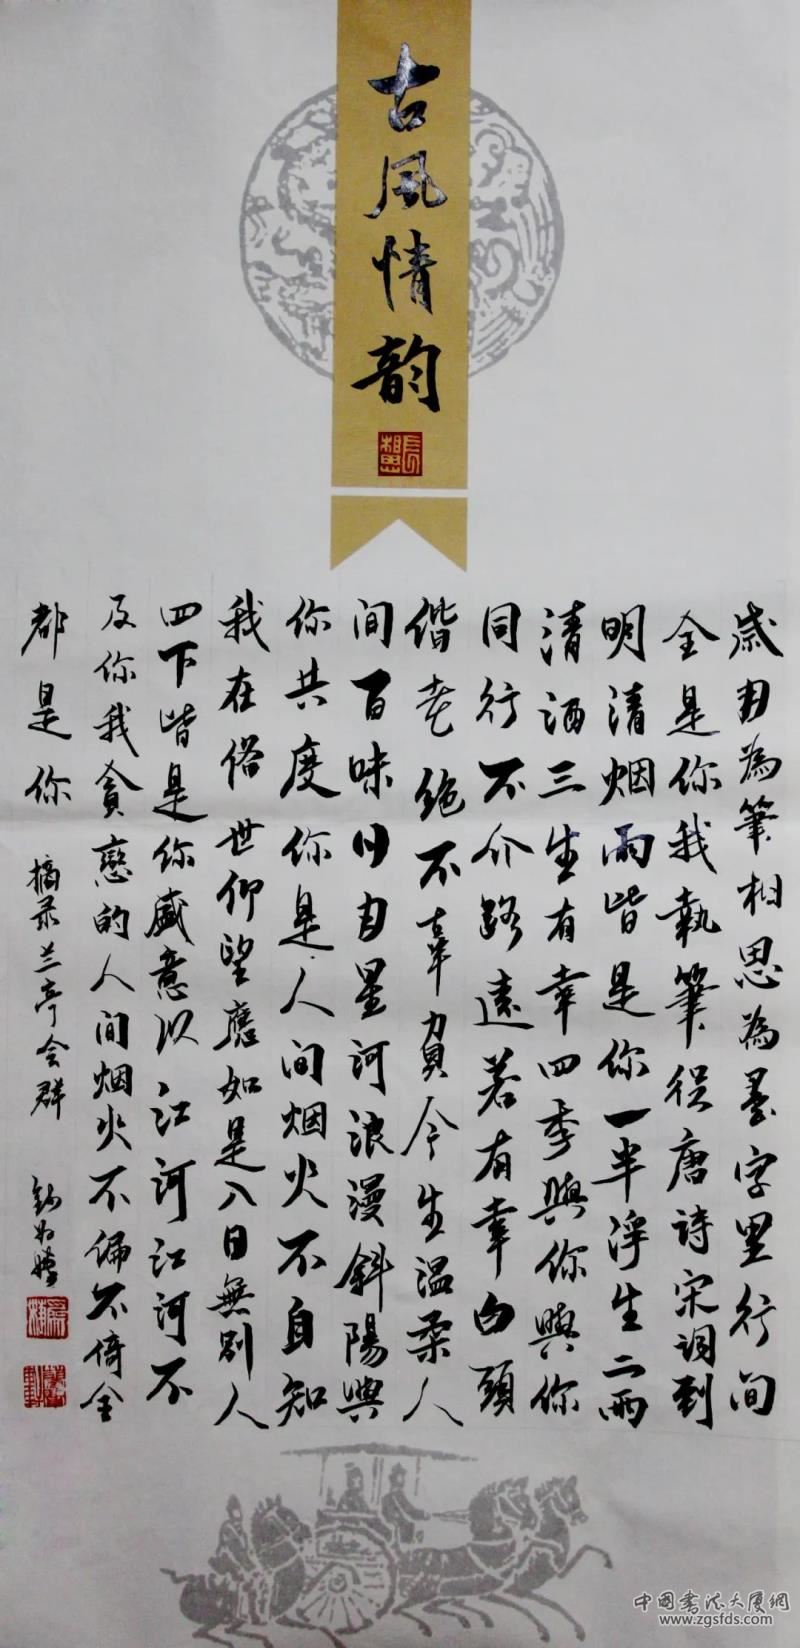 古風情韵
長相思
歲月為筆相思為墨字里行间
全是你我執筆從唐詩宋词到
明清烟雨皆是你一半浮生二两
清酒三生有幸四季與你與你
同行不介路遠若有幸白頭
偕老绝不辜負今生温柔人
间百味日月星河浪漫斜陽與
你共度你是人间烟火不自知
我在俗世仰望應如是入目無别人
四下皆是你盛意以江河江河不
及你我贪戀的人间烟火不偏不倚全
都是你
摘录兰亭会群
中國書法大厦網
www.zgsfds.com